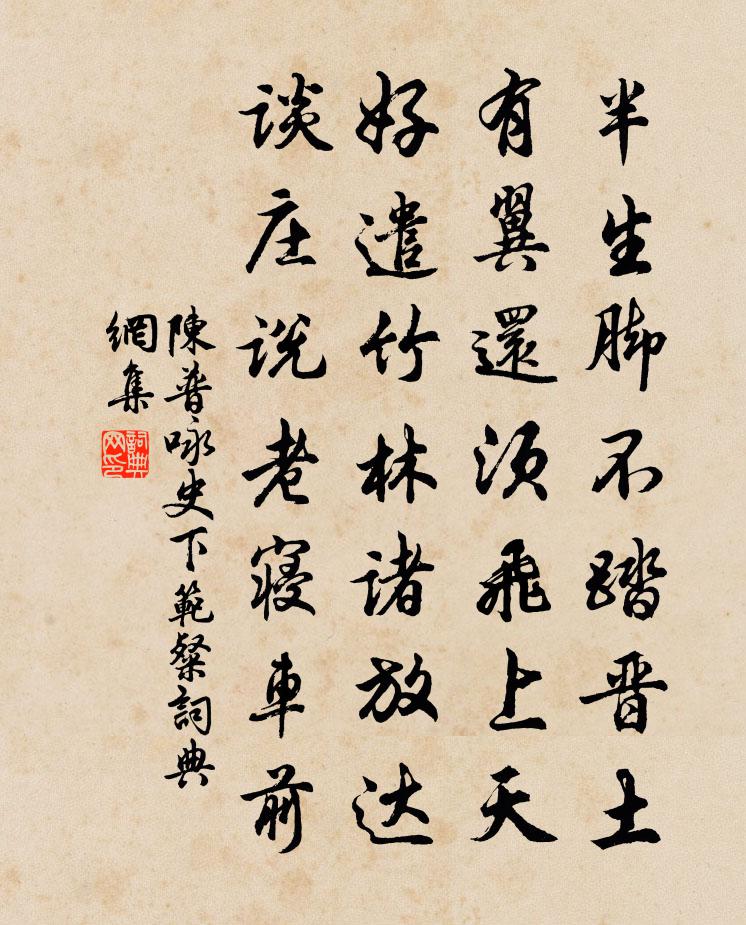 半生脚不踏晋土
有翼還須飛上天
好遣竹林诸放达
谈庄说老寝車前
陳普咏史下範粲詞典
網集
詞典
网印